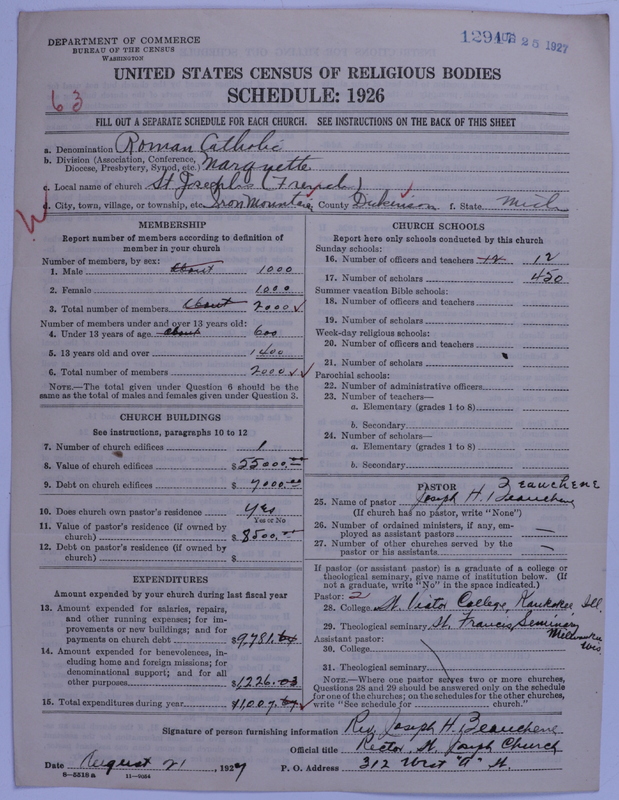 DEPARTMENT OF COMMERCE
BUREAU OF THE CENSUS
WASHINGTON
12947 AUG 25 1927
UNITED STATES CENSUS OF RELIGIOUS BODIES
SCHEDULE: 1926
63
FILL OUT A SEPARATE SCHEDULE FOR EACH CHURCH. SEE INSTRUCTIONS ON THE BACK OF THIS SHEET
a. Denomination Roman Catholic
b. Division (Association, Conference, Diocese, Presbytery, Synod, etc.) Marquette
c. Local name of church St Joseph's (French)
d. City, town, village, or township, etc. Iron Mountain, County Dickinson f. State Mich
MEMBERSHIP
Report number of members according to definition of
member in your church
Number of members, by sex:
1. Male about 1000
2. Female 1000
3. Total number of members about 2000
Number of members under and over 13 years old:
4. Under 13 years of age about 600
5. 13 years old and over 1400
6. Total number of members 2000
NOTE.—The total given under Question 6 should be the
same as the total of males and females given under Question 3.
CHURCH BUILDINGS
See instructions, paragraphs 10 to 12
7. Number of church edifices 1
8. Value of church edifices $55000.00
9. Debt on church edifices $7000.00
10. Does church own pastor's residence yes
Yes or No
11. Value of pastor's residence (if owned by
church) $8500.00
12. Debt on pastor's residence (if owned by
church) $
EXPENDITURES
Amount expended by your church during last fiscal year
13. Amount expended for salaries, repairs,
and other running expenses; for im-
provements or new buildings; and for
payments on church debt $9,781.64
14. Amount expended for benevolences, in-
cluding home and foreign missions; for
denominational support; and for all
other purposes $1,226.03
15. Total expenditures during year $11,007.67
CHURCH SCHOOLS
Report here only schools conducted by this church
Sunday schools:
16. Number of officers and teachers 12 12
17. Number of scholars 450
Summer vacation Bible schools:
18. Number of officers and teachers
19. Number of scholars
Week-day religious schools:
20. Number of officers and teachers
21. Number of scholars
Parochial schools:
22. Number of administrative officers
23. Number of teachers—
a. Elementary (grades 1 to 8)
b. Secondary
24. Number of scholars—
a. Elementary (grades 1 to 8)
b. Secondary
PASTOR BEAUCHENE
25. Name of pastor Joseph H. Beauchene
(If church has no pastor, write "None")
26. Number of ordained ministers, if any, em-
ployed as assistant pastors —
27. Number of other churches served by the
pastor or his assistants —
If pastor (or assistant pastor) is a graduate of a college or
theological seminary, give name of institution below. (If
not a graduate, write "No" in the space indicated.)
Pastor: 2
28. College St. Viator College, Kankakee, Ill.
29. Theological seminary St. Francis Seminary Milwaukee Wis
Assistant pastor:
30. College
31. Theological seminary
NOTE.—Where one pastor serves two or more churches,
Questions 28 and 29 should be answered only on the schedule
for one of the churches; on the schedules for the other churches,
write "See schedule for church."
Signature of person furnishing information Rev. Joseph H. Beauchene
Official title Rector, St. Joseph Church
Date August 21, 1927 P. O. Address 312 West "A" St.
8—5518a 11—9164